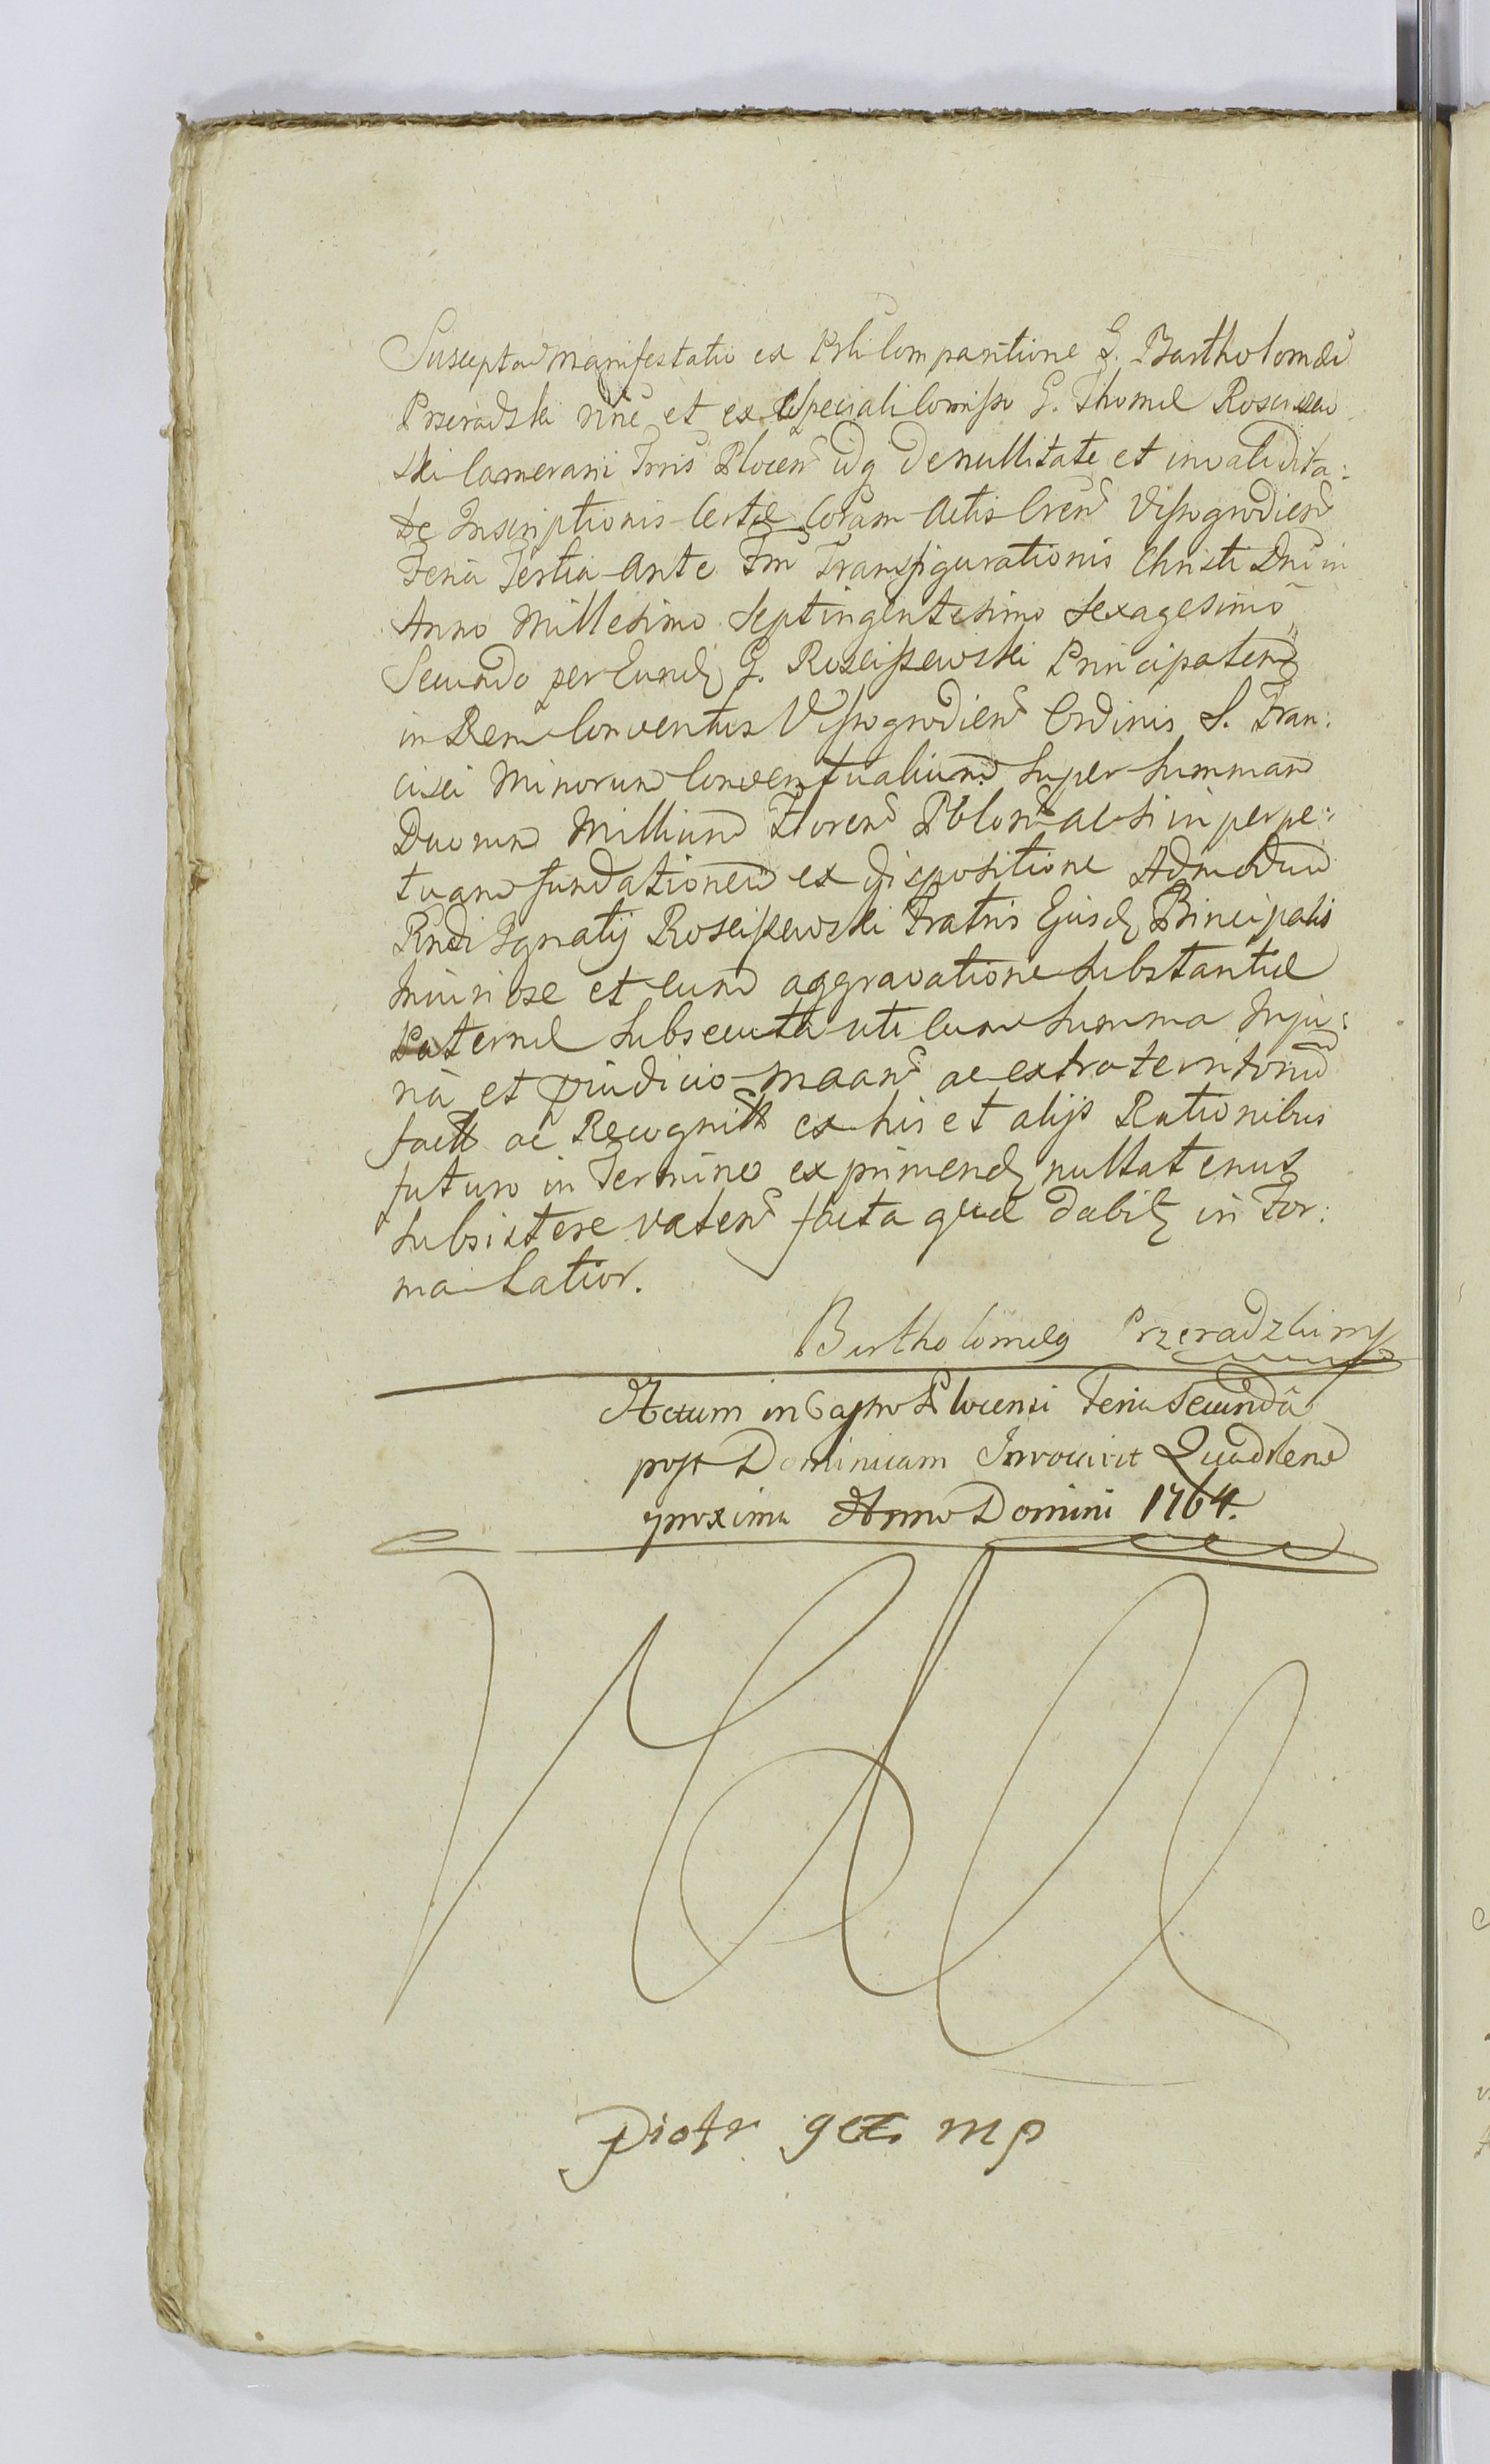 Suscepta Manifestatio ex Prli Comparitione G. Bartholomæi
Przeradzki nne et ex Speciali Comisso G. Thomæ Rosciszew
ski Camerarii Trris Plocen idq de nullitate et invalidita:
te Inscriptionis Certæ Coram Actis Cren Vissogrodien
Feria Tertia Ante Fm Transfigurationis Christi Dni in
Anno Millesimo Septingentesimo Sexagesimo
Secundo per Eund G. Rosciszewski Principalem
in Rem Conventus Vissogrodien Ordinis S. Fran:
cisci Minorum Conventualium Super Summam
Duorum Millium Floren Polon ac si in perpe:
tuam fundationem ex dispositione Admodum
Rndi Ignatij Rosciszewski Fratris Ejusd Principalis
Iniuriose et cum aggravatione Substantiæ
Paternæ Subsecuta uti cum Summa Inju:
ria et præiudicio Maan ac extra territorium
fact ac Recognit ex his et alijs Rationibus
futuro in Termino exprimend nullatenus
Subsistere valen facta quæ dabit in For:
ma Latior.
Bartholomeg Przeradzki mp
Actum in Castro Plocensi Feria Secunda
post Dominicam Invocavit Quadlem
proxima Anno Domini 1764.
Piotr gez mp